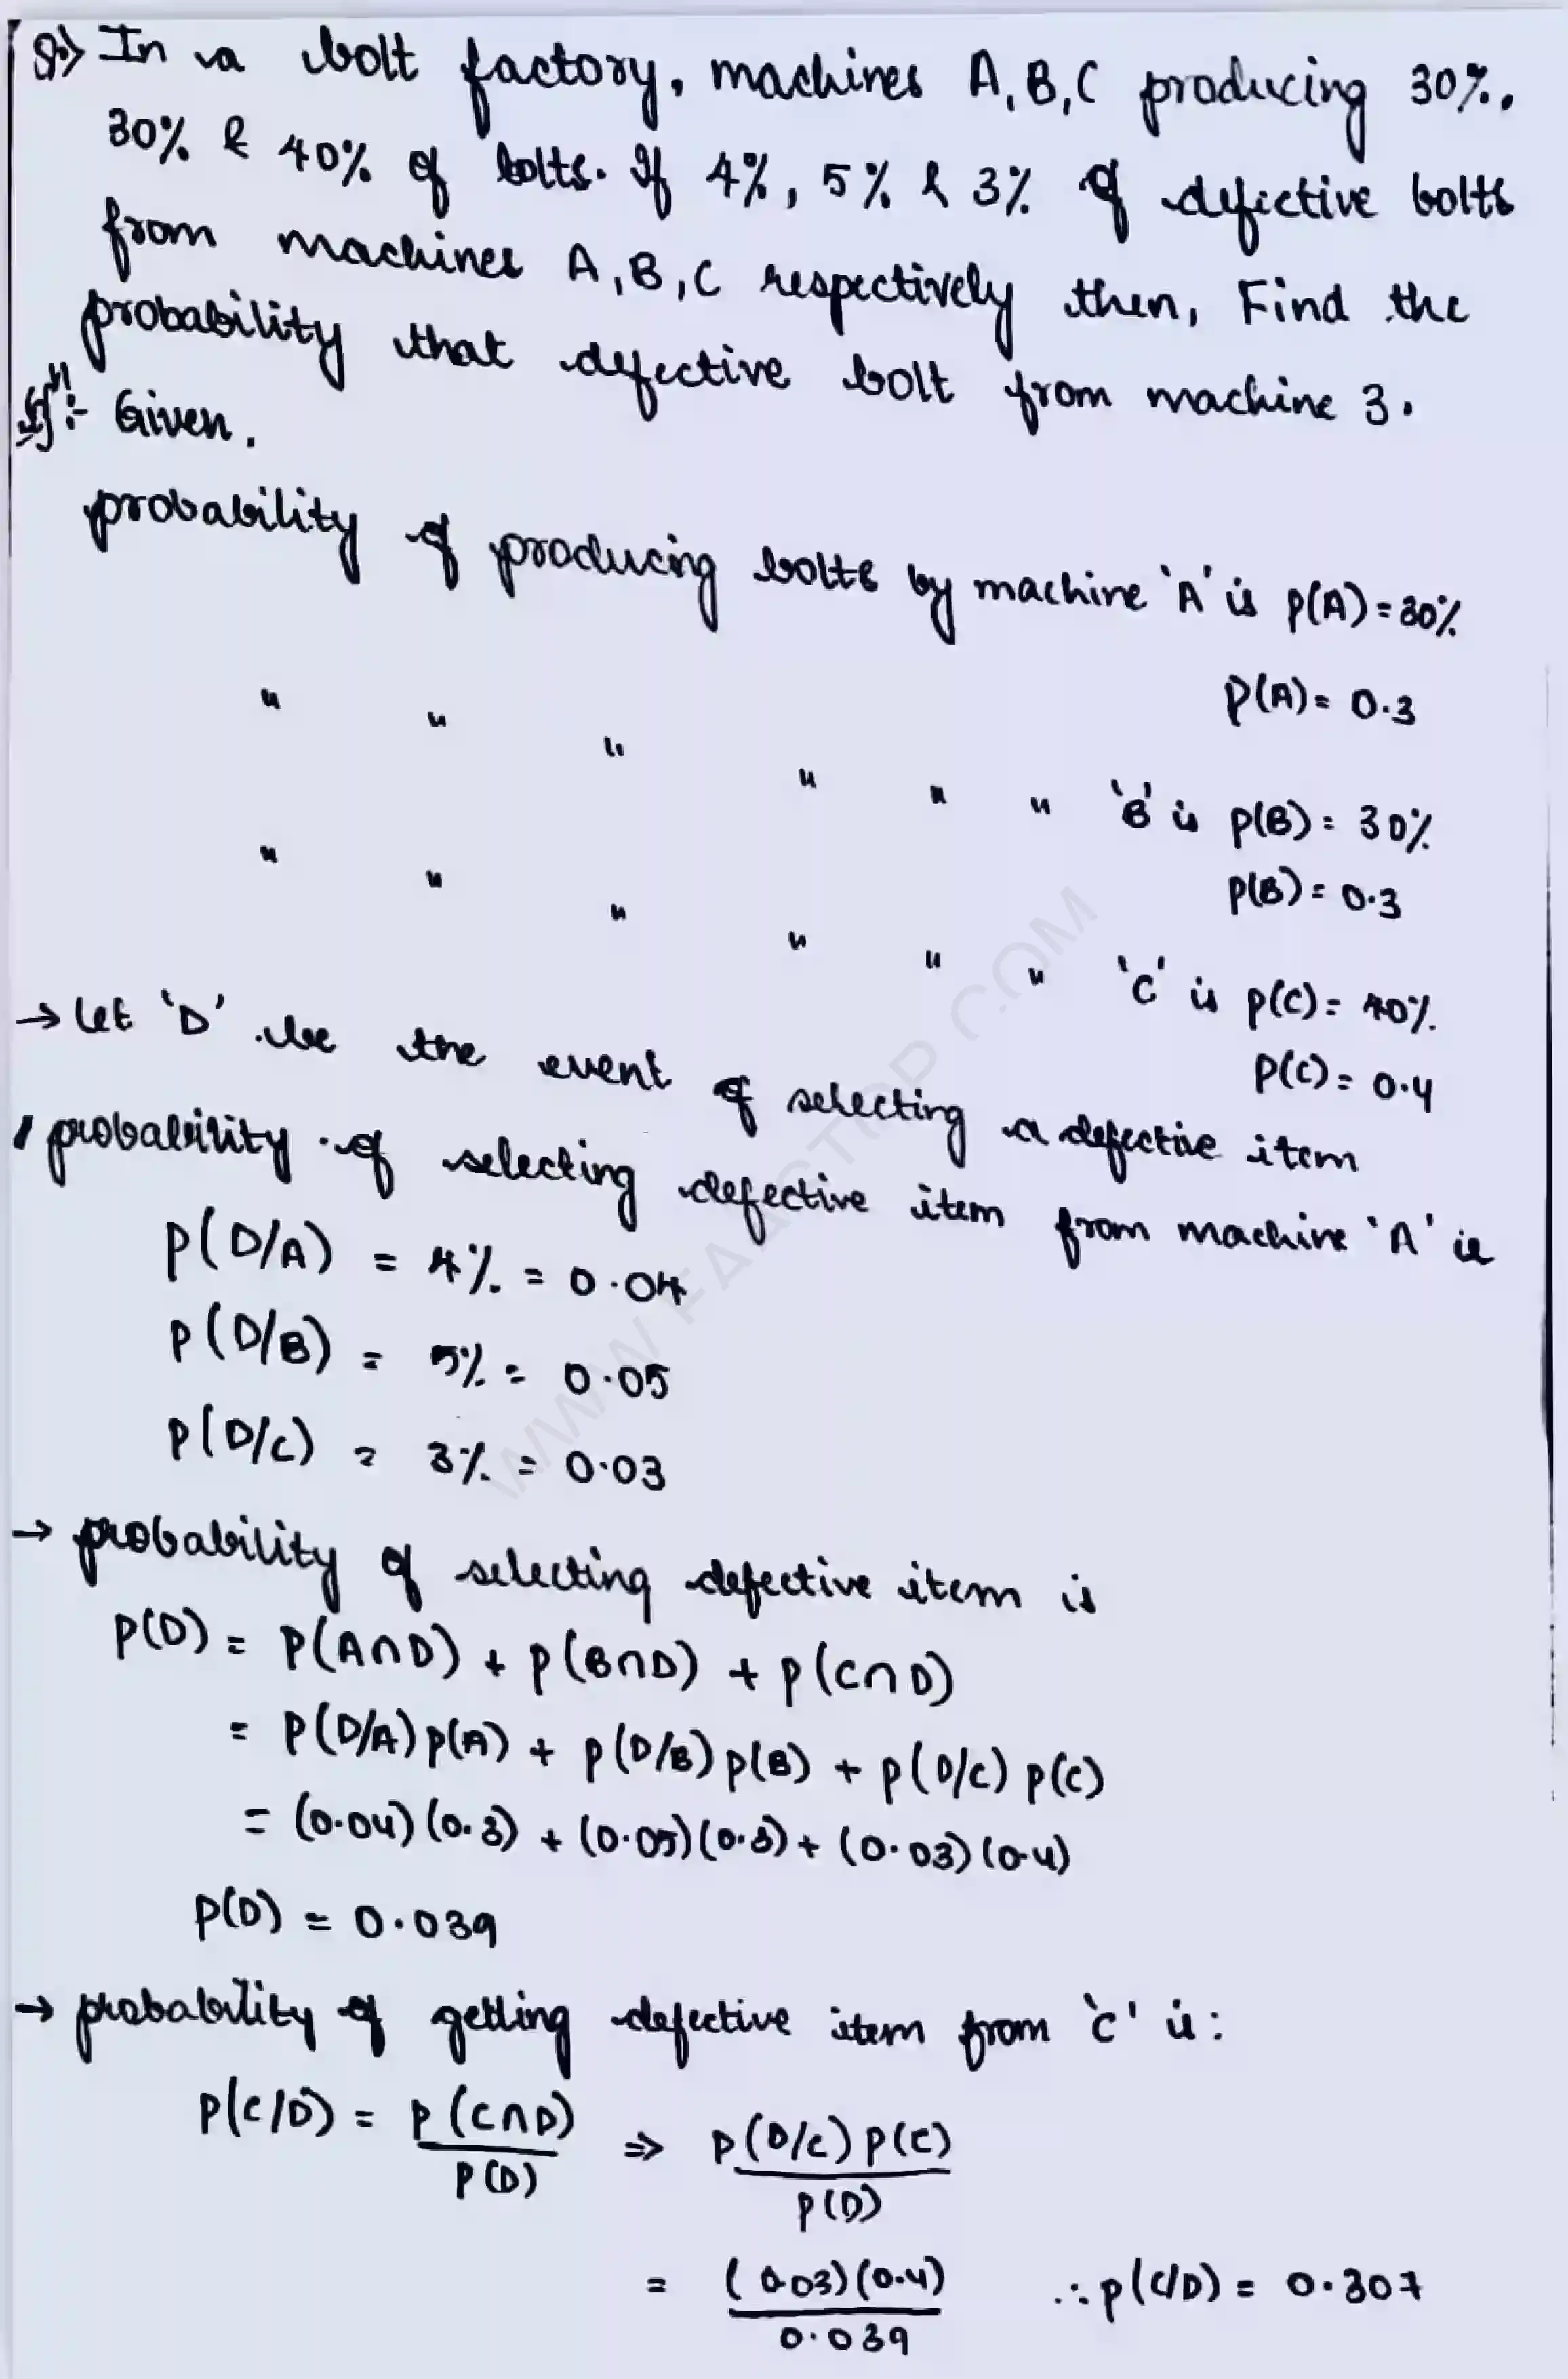 Q.) In a bolt factory, machines A, B, C producing 30%.
30% & 40% of bolts. If 4%, 5% & 3% of defective bolts
from machines A, B, C respectively then, Find the
probability that defective bolt from machine 3.
Solⁿ:- Given,
probability of producing bolts by machine 'A' is P(A) = 30%
P(A) = 0.3
" " " " " " 'B' is P(B) = 30%
P(B) = 0.3
" " " " " " 'C' is P(C) = 40%.
P(C) = 0.4
→ Let 'D' be the event of selecting a defective item
probability of selecting defective item from machine 'A' is
P(D/A) = 4% = 0.04
P(D/B) = 5% = 0.05
P(D/C) = 3% = 0.03
→ probability of selecting defective item is
P(D) = P(A∩D) + P(B∩D) + P(C∩D)
= P(D/A) P(A) + P(D/B) P(B) + P(D/C) P(C)
= (0.04) (0.3) + (0.05) (0.3) + (0.03) (0.4)
P(D) = 0.039
→ probability of getting defective item from 'C' is:
P(C/D) = P(C∩D) / P(D) ⇒ P(D/C) P(C) / P(D)
= (0.03) (0.4) / 0.039 ∴ P(C/D) = 0.307